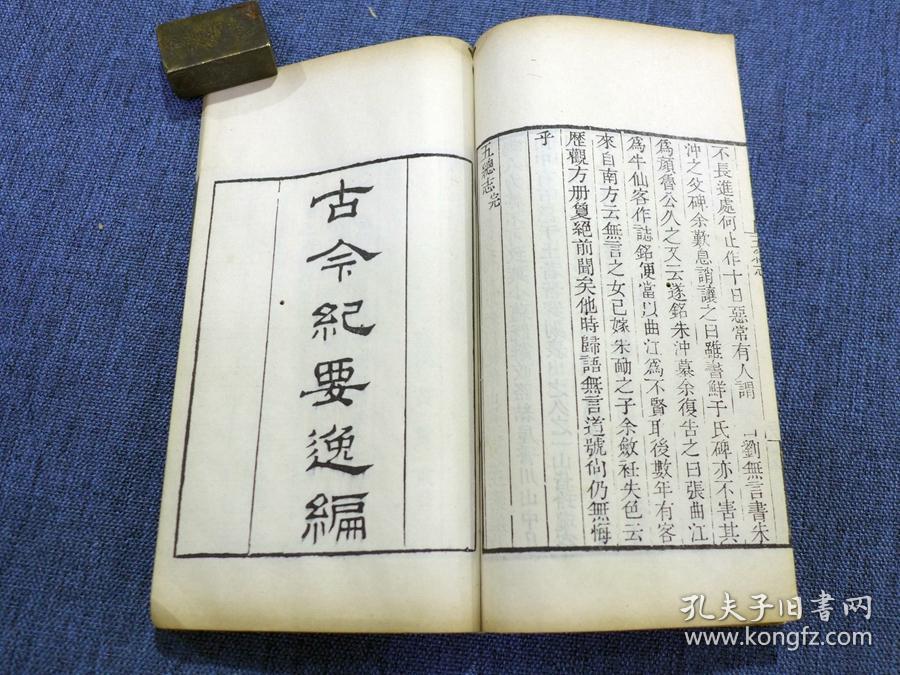 不長進處何止作十日惡常有人謂 劉無言書朱
沖之父碑余歎息誚讓之曰雖書鮮于氏碑亦不害其
爲顔魯公久之又云遂銘朱沖墓余復告之曰張曲江
爲牛仙客作誌銘便當以曲江爲不賢耶後數年有客
來自南方云無言之女已嫁朱勔之子余斂衽失色云
歷觀方册敻絕前聞矣他時歸語無言道號仙仍無悔
乎
五總志完
古今紀要逸編
孔夫子旧書网
www.kongfz.com